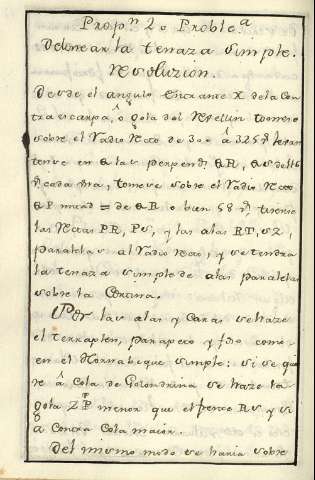 Propⁿ 2 o Problᵉᵃ
Delinear la tenaza simple.
Resoluzion.
Desde el angulo entrante X dela Con
tra escarpa, ô gola del Revellin tomese
sobre el Radio Recto de 300 â 325 ps levan
tense en Q las perpendˢ QR, QS de
cada una, tomese sobre el Radio Recto
QP mitad = de QR o bien 58 ps tirense
las Rectas PR, PS, y las alas RT, SZ,
paralelas al Radio recto, y se tendra
la tenaza simple de alas paralelas
sobre la Cortina.
Por las alas y Caras se haze
el terraplen, parapeto y foso como
en el Hornabeque simple: si se qui
re â Cola de Golondrina se haze la
gola ZT menor que el frente RS y si
a Contra Cola maior.
Del mismo modo se haria sobre